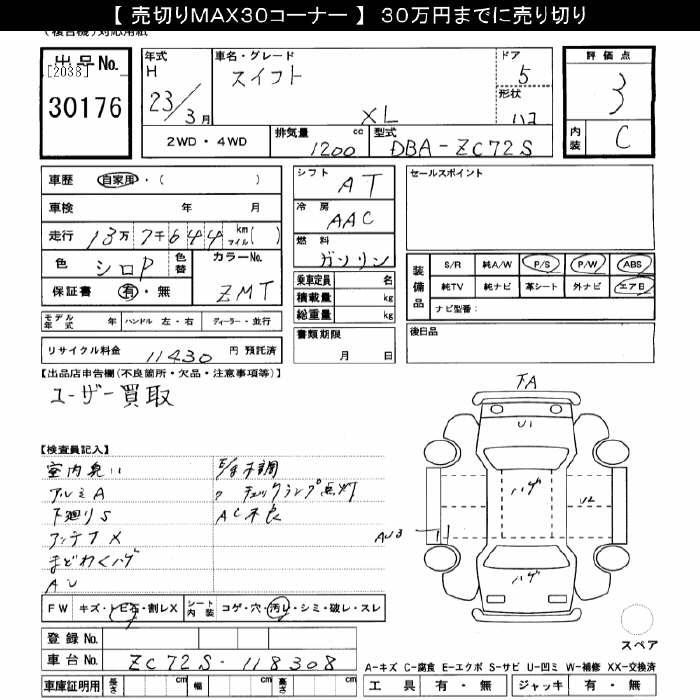 【 売切りMAX30コーナー 】 30万円までに売り切り
(複合機)対応用紙
出品No.
[2038]
30176
年式
H
23/3月
車名・グレード
スイフト
XL
ドア
5
形状
ハコ
評価点
3
内装
C
2WD・4WD
排気量
1200
cc
型式
DBA-ZC72S
車歴 自家用・( )
車検 年 月
走行 13万7千644 km マイル( )
色 シロP 色替 カラーNo.
ZMT
保証書 有・無
モデル年式 年 ハンドル 左・右 ディーラー・並行
リサイクル料金 11430 円 預託済
シフト AT
冷房 AAC
燃料 ガソリン
乗車定員 名
積載量 kg
総重量 kg
書類期限
月 日
セールスポイント
装備品
S/R 純A/W P/S P/W ABS
純TV 純ナビ 革シート 外ナビ エアB
ナビ型番:
後日品
【出品店申告欄(不良箇所・欠品・注意事項等)】
ユーザー買取
【検査員記入】
室内臭い
アルミA
下廻りS
アンテナX
まどわくハゲ
AU
E/g不調
〃 チェックランプ点灯
AC不良
FA
U1
ハゲ
U2
AU3
ハゲ
スペア
FW キズ・トビ石・割レX
シート内装 コゲ・穴・汚レ・シミ・破レ・スレ
登録No.
車台No. ZC72S-118308
車庫証明用 長さ cm 幅 cm 高さ cm
A-キズ C-腐食 E-エクボ S-サビ U-凹ミ W-補修 XX-交換済
工具 有・無 ジャッキ 有・無